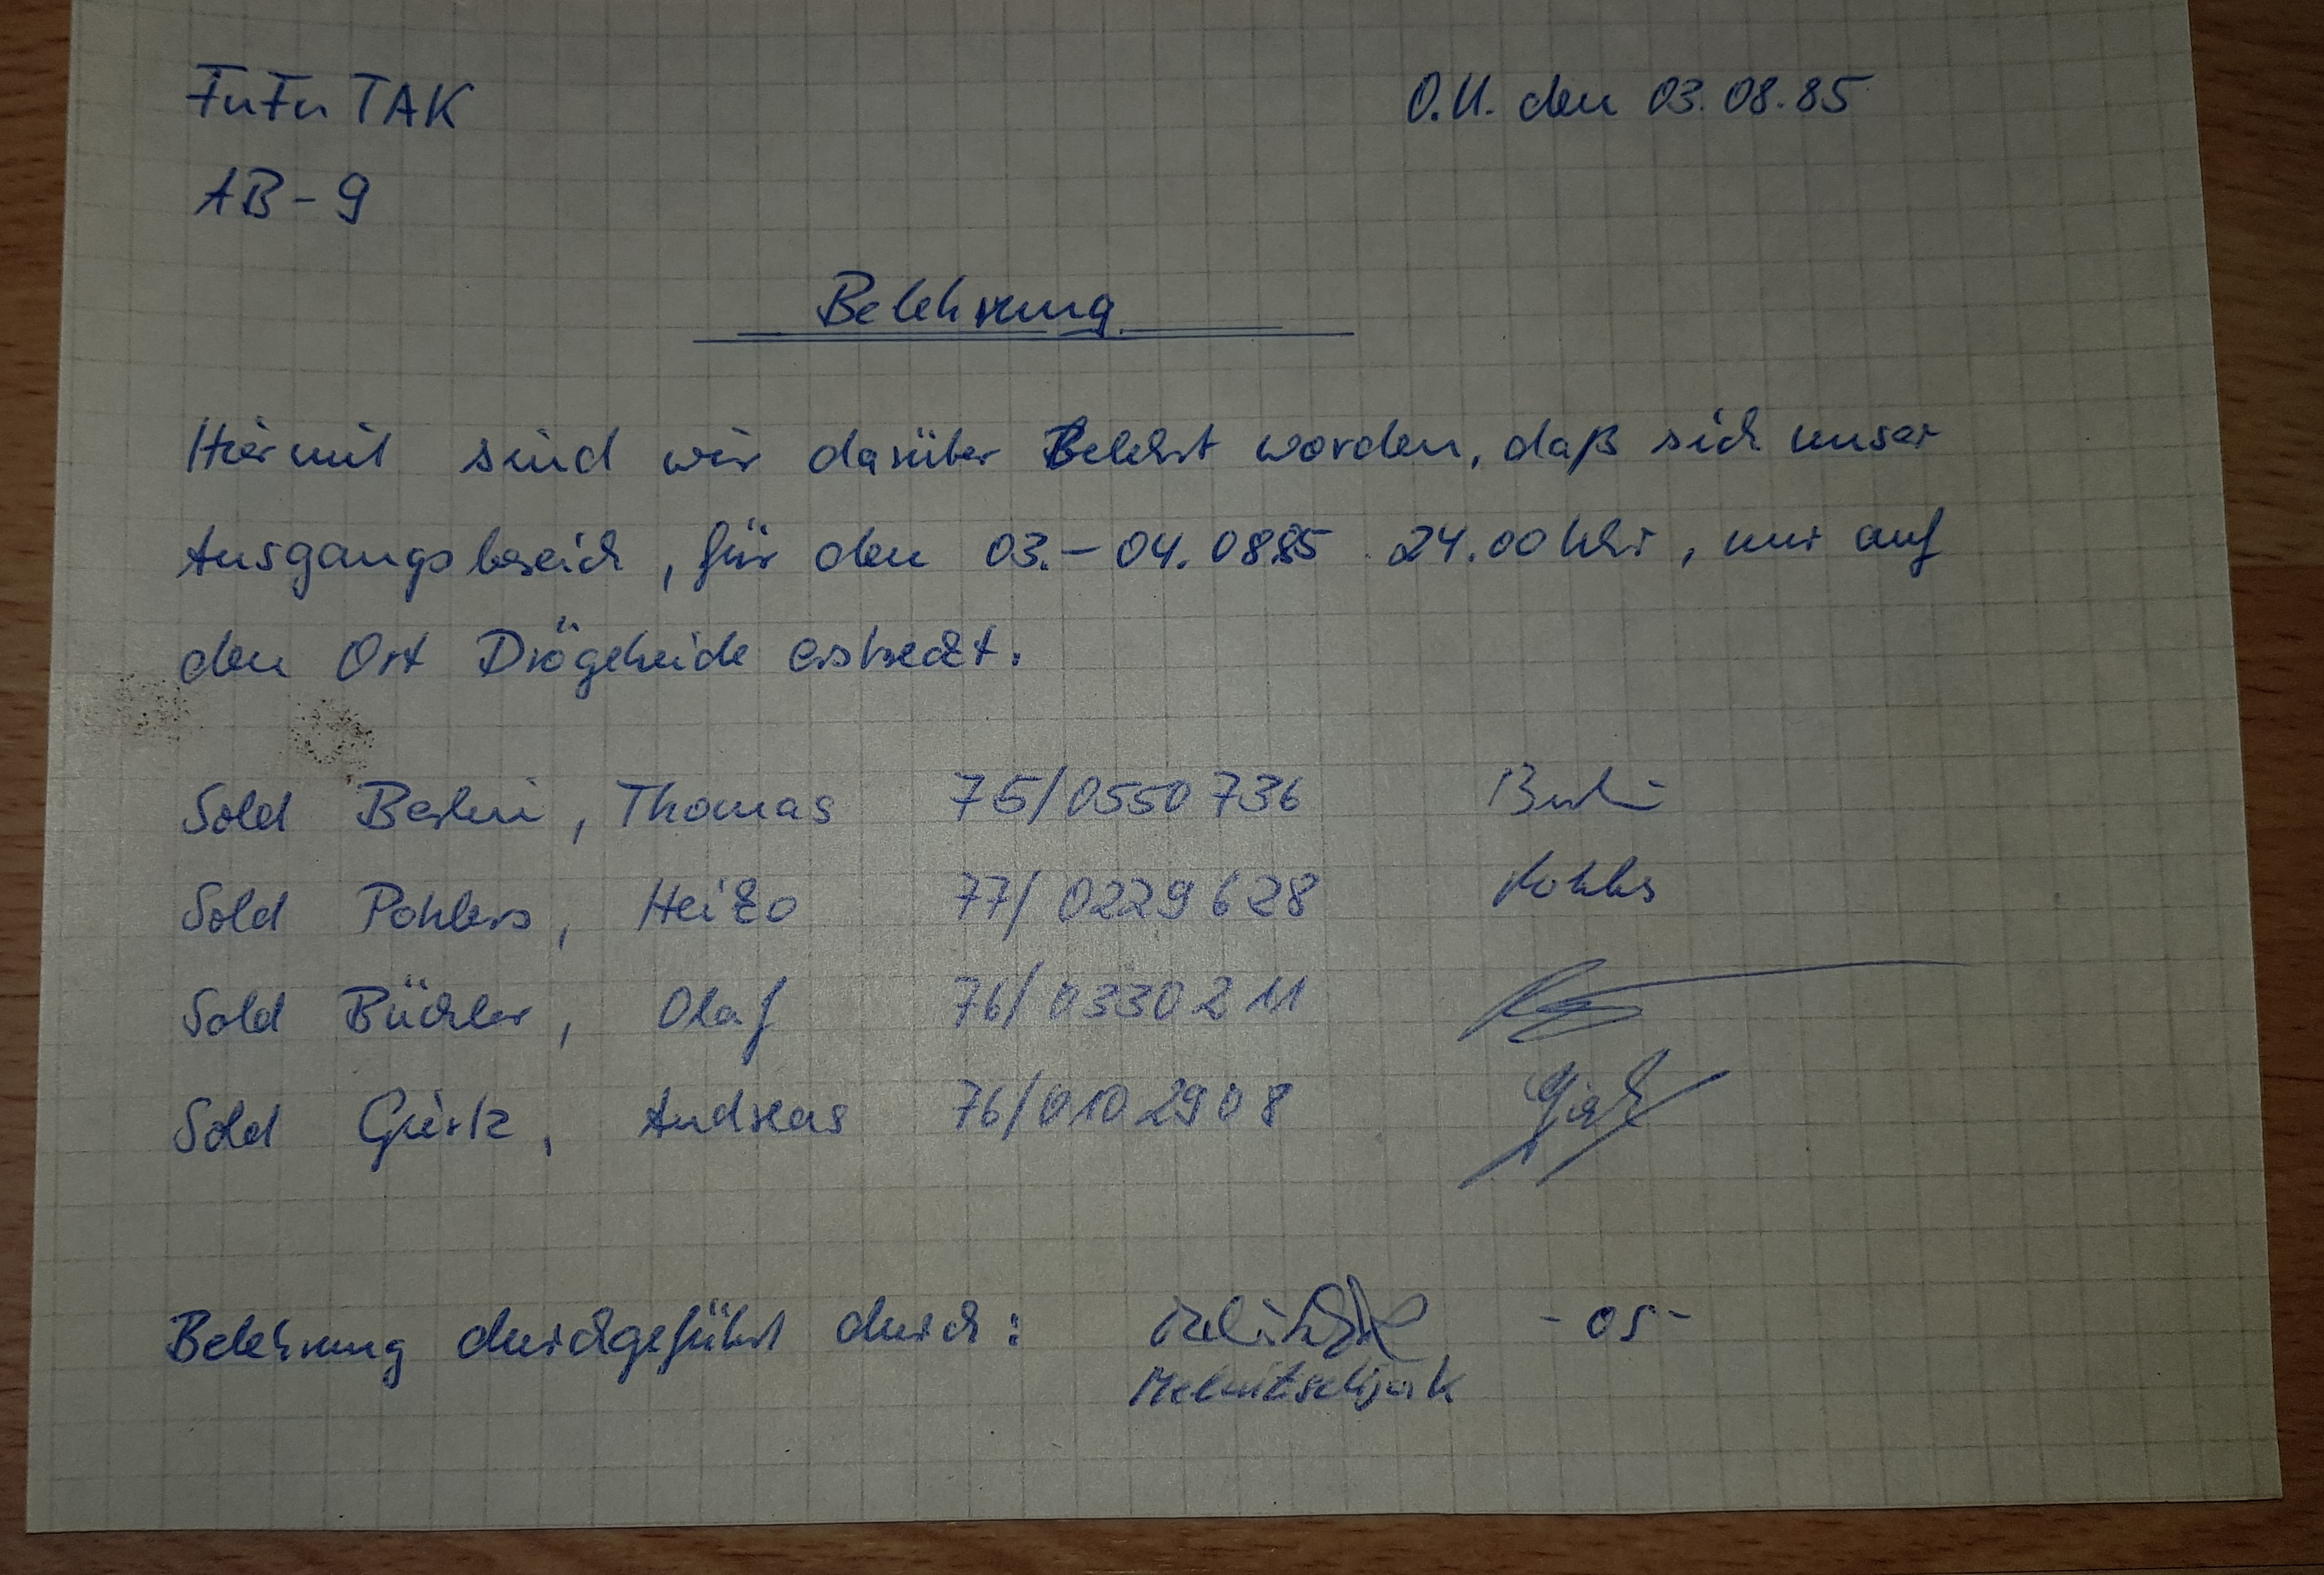 FuFu TAK O.U. den 03.08.85
AB-9
Belehrung
Hiermit sind wir darüber Belehrt worden, daß sich unser
Ausgangsbereich, für den 03.-04.08.85 24.00 Uhr, nur auf
den Ort Drögeheide erstreckt.
Sold Berlin, Thomas 75/0550736 Berlin
Sold Pohlers, Heiko 77/0229628 Pohlers
Sold Büchler, Olaf 76/0330211
Sold Gürtz, Andreas 76/0102908
Belehrung durchgeführt durch: -OS-
Melnitschjok